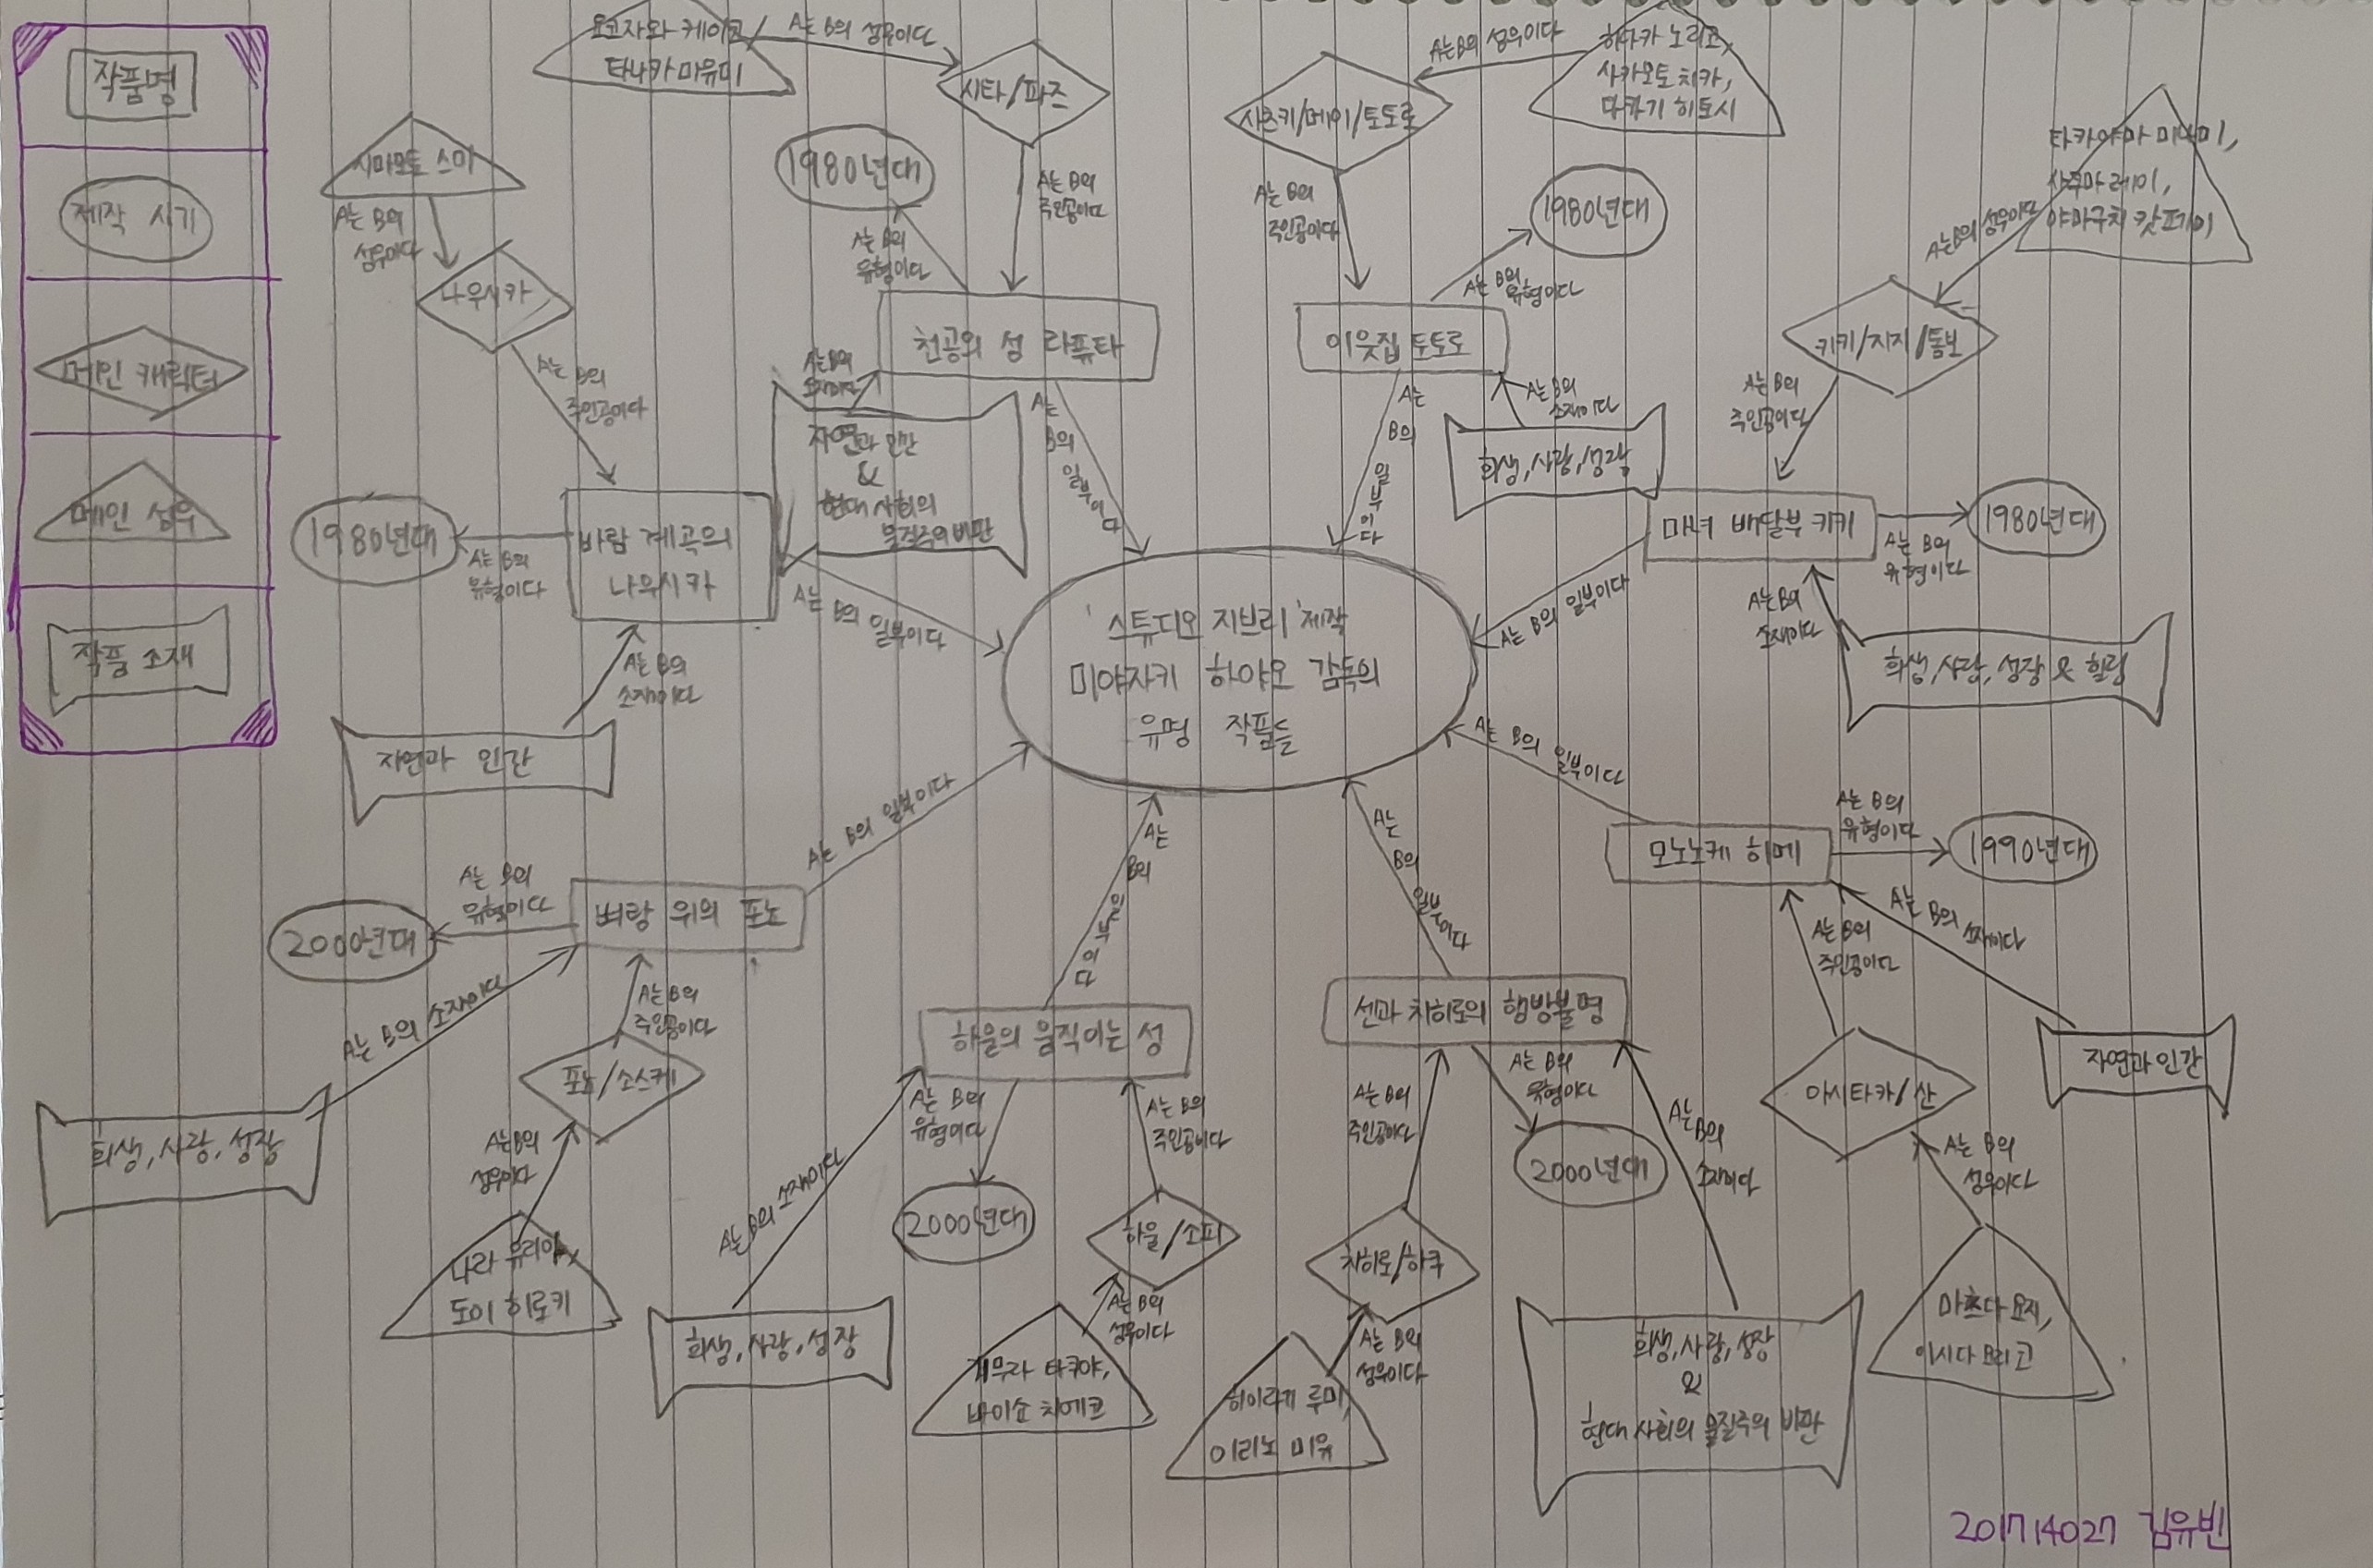 작품명
제작 시기
메인 캐릭터
메인 성우
작품 소재
요코자와 케이코/
타나카 마유미
A는 B의 성우이다
시타/파즈
A는 B의
주인공이다
1980년대
A는 B의
유형이다
천공의 성 라퓨타
A는 B의
소재이다
자연과 인간
&
현대 사회의
물질주의 비판
A는
B의
일부이다
시마모토 스미
A는 B의
성우이다
나우시카
A는 B의
주인공이다
1980년대
A는 B의
유형이다
바람 계곡의
나우시카
A는 B의 일부이다
A는 B의
소재이다
자연과 인간
히다카 노리코,
사카모토 치카,
타카기 히토시
A는 B의 성우이다
사츠키/메이/토토로
A는 B의
주인공이다
1980년대
A는 B의
유형이다
이웃집 토토로
A는
B의
일부이다
A는 B의
소재이다
희생, 사랑, 성장
타카야마 미나미,
사쿠마 레이,
야마구치 캇페이
A는 B의 성우이다
키키/지지/톰보
A는 B의
주인공이다
마녀 배달부 키키
A는 B의
유형이다
1980년대
A는 B의 일부이다
A는 B의
소재이다
희생, 사랑, 성장 & 힐링
'스튜디오 지브리' 제작
미야자키 하야오 감독의
유명 작품들
A는 B의 일부이다
모노노케 히메
A는 B의
유형이다
1990년대
A는 B의
주인공이다
A는 B의 소재이다
아시타카/산
자연과 인간
A는 B의
성우이다
마츠다 요지,
이시다 유리코
A는 B의 일부이다
벼랑 위의 포뇨
A는 B의
유형이다
2000년대
A는 B의 소재이다
희생, 사랑, 성장
A는 B의
주인공이다
포뇨/소스케
A는 B의
성우이다
나라 유리아,
도이 히로키
A는
B의
일부이다
하울의 움직이는 성
A는 B의
유형이다
2000년대
A는 B의
주인공이다
하울/소피
A는 B의 소재이다
희생, 사랑, 성장
A는 B의
성우이다
기무라 타쿠야,
바이쇼 치에코
A는
B의
일부이다
센과 치히로의 행방불명
A는 B의
주인공이다
A는 B의
유형이다
2000년대
A는 B의
소재이다
치히로/하쿠
A는 B의
성우이다
히이라기 루미,
이리노 미유
희생, 사랑, 성장
&
현대 사회의 물질주의 비판
201714027 김유빈